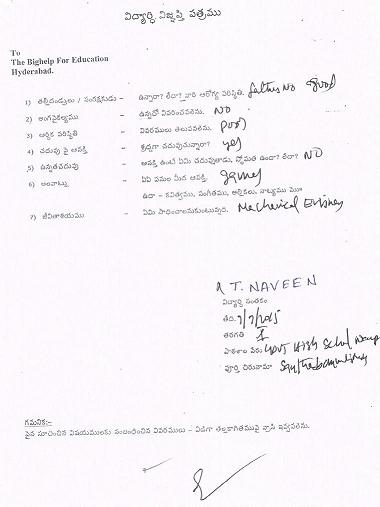 విద్యార్థి విజ్ఞప్తి పత్రము
To
The Bighelp For Education
Hyderabad.
1) తల్లిదండ్రులు / సంరక్షకుడు – ఉన్నారా? లేదా? వారి ఆరోగ్య పరిస్థితి. father NO good
2) అంగవైకల్యము – ఉన్నచో వివరించవలెను. NO
3) ఆర్థిక పరిస్థితి – వివరములు తెలుపవలెను. poor
4) చదువు పై ఆసక్తి – శ్రద్ధగా చదువుచున్నారా? yes
5) ఉన్నతచదువు – ఆసక్తి ఉంటే ఏమి చదువుతాడు, స్తోమత ఉందా? లేదా? NO
6) అలవాట్లు – ఏఏ పనుల మీద ఆసక్తి. games
ఉదా – కవిత్వము, సంగీతము, అల్లికలు, నాట్యము మొ
7) జీవితాశయము – ఏమి సాధించాలనుకుంటున్నది. Mechanical
T. NAVEEN
విద్యార్థి సంతకం
తేది. 7/7/2015
తరగతి
పాఠశాల పేరు GOVT High School
పూర్తి చిరునామా
గమనిక:-
పైన సూచించిన విషయములకు సంబంధించిన వివరములు – విడిగా తెల్లకాగితముపై వ్రాసి ఇవ్వవలెను.